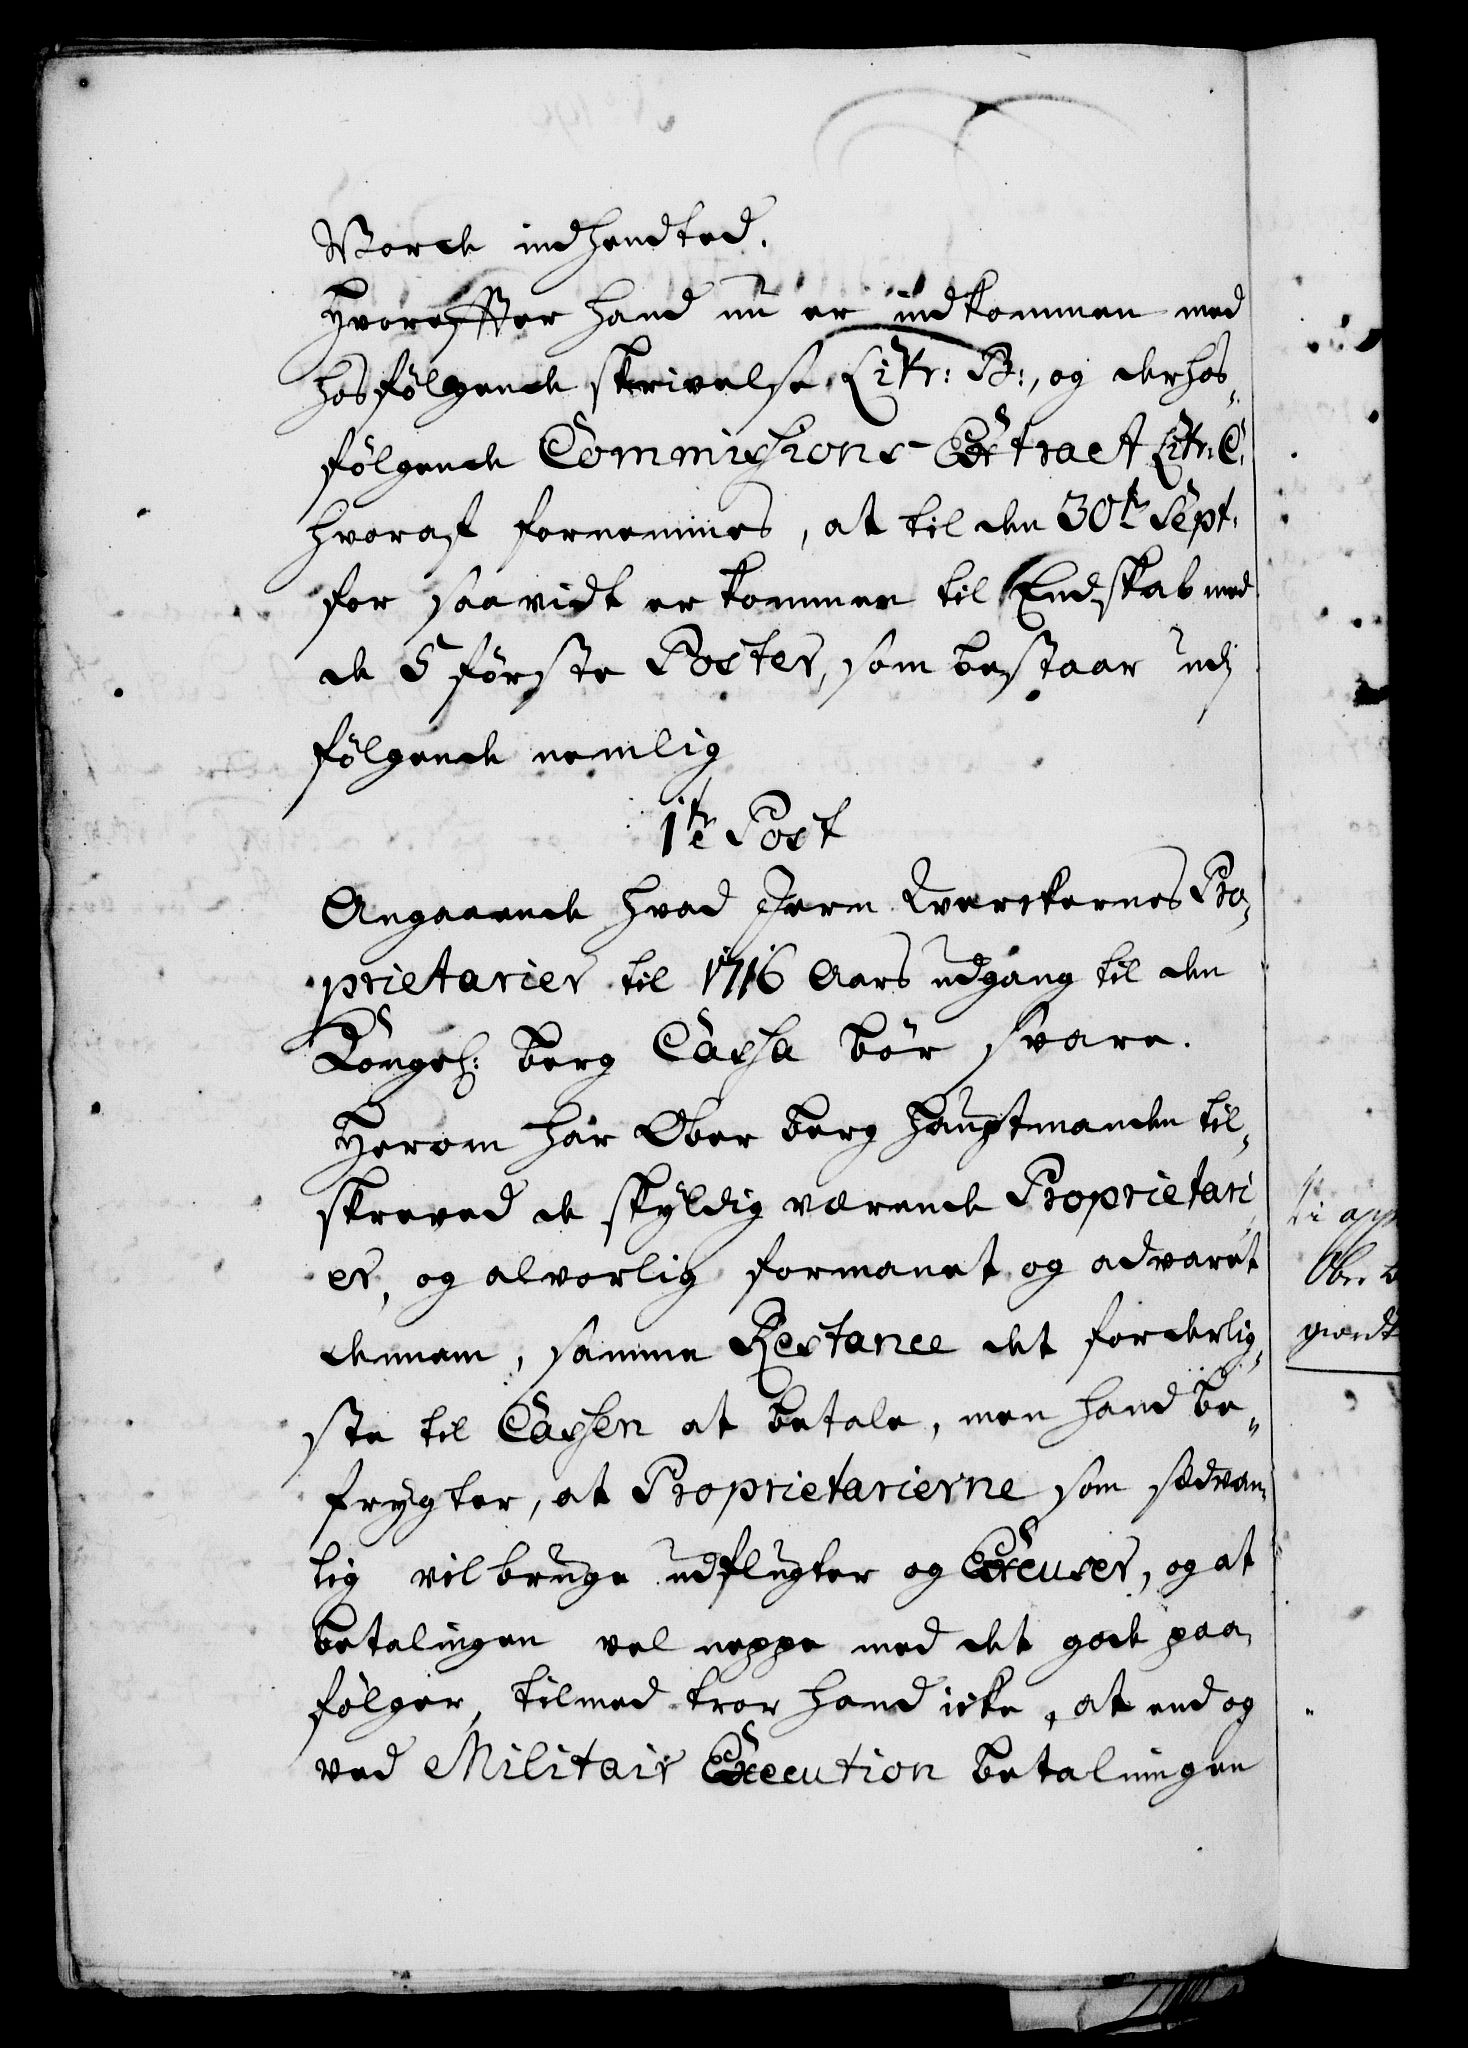 Worde indhendted.
Hvoreffter hand nu er indkommen med
hosfölgende skrivelse Litr: B:, og derhos„
fölgende Commissions-Extract Litr: C.
hvoraf fornemmes, at til den 30te Sept.
for saavidt er kommen til Endskab med
de 5 förste Poster, som bestaar udj
fölgende nemlig
1te Post
Angaaende hvad Jern Værckernes Pro„
prietarier til 1716 Aars udgang til den
Kongel: berg Cassa bör svare.
Herom har Ober berg Hauptmanden til„
skreved de skyldig værende Proprietari
er, og alvorlig formanet og advaret
dennem, samme Restance det forderlig„
ste til Cassen at betale, men hand be„
frygter, at Proprietarierne som sædvan„
lig vil bruge udflugter og Excuser, og at
betalingen vel neppe med det gode paa
fölger, tilmed troer hand icke, at end og
ved Militair Execution betalningen